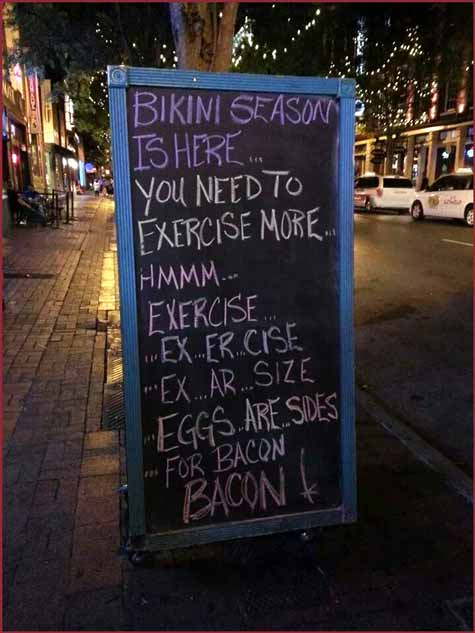 BIKINI SEASON
IS HERE...
YOU NEED TO
EXERCISE MORE...
HMMM...
EXERCISE...
...EX...ER...CISE
...EX...AR...SIZE
...EGGS...ARE...SIDES
...FOR BACON
BACON!